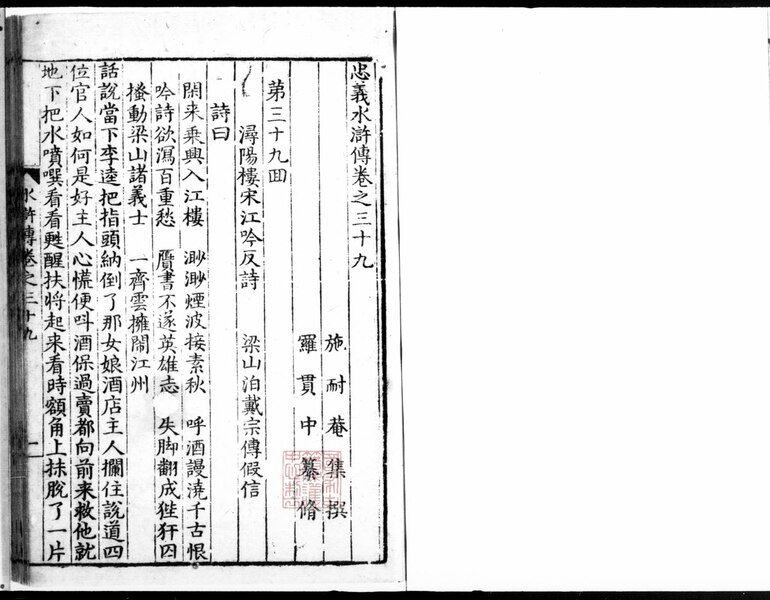 忠義水滸傳卷之三十九
施耐菴集撰
羅貫中纂脩
第三十九回
潯陽樓宋江吟反詩　梁山泊戴宗傳假信
詩曰
閑来乗興入江樓　渺渺煙波接素秋　呼酒謾澆千古恨
吟詩欲瀉百重愁　贋書不遂英雄志　失脚翻成狴犴囚
搔動梁山諸義士　一齊雲擁鬧江州
話說當下李逵把指頭納倒了那女娘酒店主人攔住說道四
位官人如何是好主人心慌便呌酒保過賣都向前来救他就
地下把水噴噀看看甦醒扶將起来看時額角上抹脫了一片
水滸傳卷之三十九
一